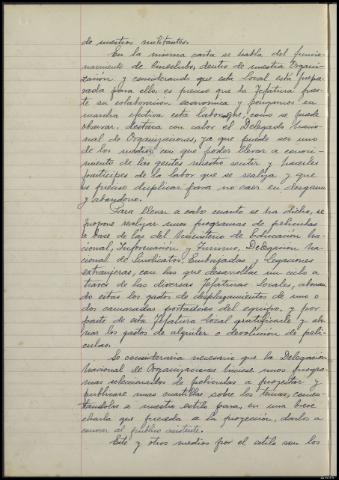 de nuestros militantes.
En la misma carta se habla del funcio-
namiento de Cineclubs, dentro de nuestra Organi-
zación y considerando que este local está prepa-
rado para ello, es preciso que la Jefatura pres-
te su colaboración económica y pongamos en
marcha efectiva esta labor que, como se puede
observar, destaca con calor el Delegado Nacio-
nal de Organizaciones, ya que puede ser uno
de los medios con que poder llevar a conoci-
miento de las gentes nuestro sentir y hacerles
partícipes de la labor que se realiza y que
es preciso duplicar para no caer en desgana
y abandono.
Para llevar a cabo cuanto se ha dicho, se
propone realizar unos programas de películas
a base de las del Ministerio de Educación Na-
cional, Información y Turismo, Delegación Na-
cional de Sindicatos, Embajadas y Legaciones
extranjeras, con las que desarrollar un ciclo a
través de las diversas Jefaturas Locales, abonan-
do estas los gastos de desplazamientos de uno o
dos camaradas portadores del equipo, y por
parte de esta Jefatura Local gratificarle y abo-
nar los gastos de alquiler o devolución de pelí-
culas.
Se consideraría necesario que la Delegación
Nacional de Organizaciones hiciese unos progra-
mas seleccionados de películas a proyectar y
publicase unas cuartillas sobre los temas,
a nuestro estilo para, en una breve
charla que preceda a la proyección, darlos a
conocer al público asistente.
Este y otros medios por el estilo son los